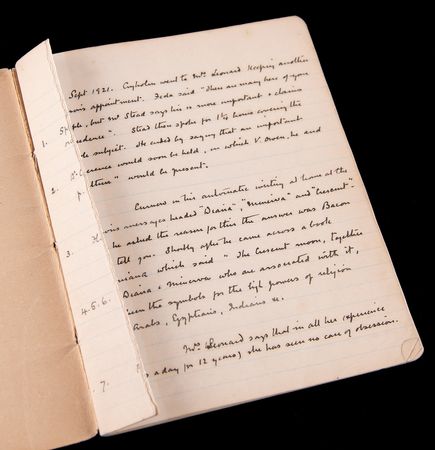 Sept 1921. went to Mrs Leonard keeping another
appointment. Feda said "There are many here of your
, but Mr Stead says his is more important & claims
". Stead then spoke for 1¼ hours covering the
subject. He ended by saying that an important
would soon be held, in which V. Owen, he and
" would be present.
in his automatic writing at home at the
messages headed "Diana", "Minerva" and "Crescent".
he asked the reason for this the answer was Bacon
tell you. Shortly after he came across a book
which said "The Crescent moon, together
Diana & Minerva who are associated with it,
been the symbols for the high powers of religion
Arabs, Egyptians, Indians &c.
Mrs Leonard says that in all her experience
a day for 12 years) she has seen no case of obsession.
1.
2.
3.
4.5.6.
7.